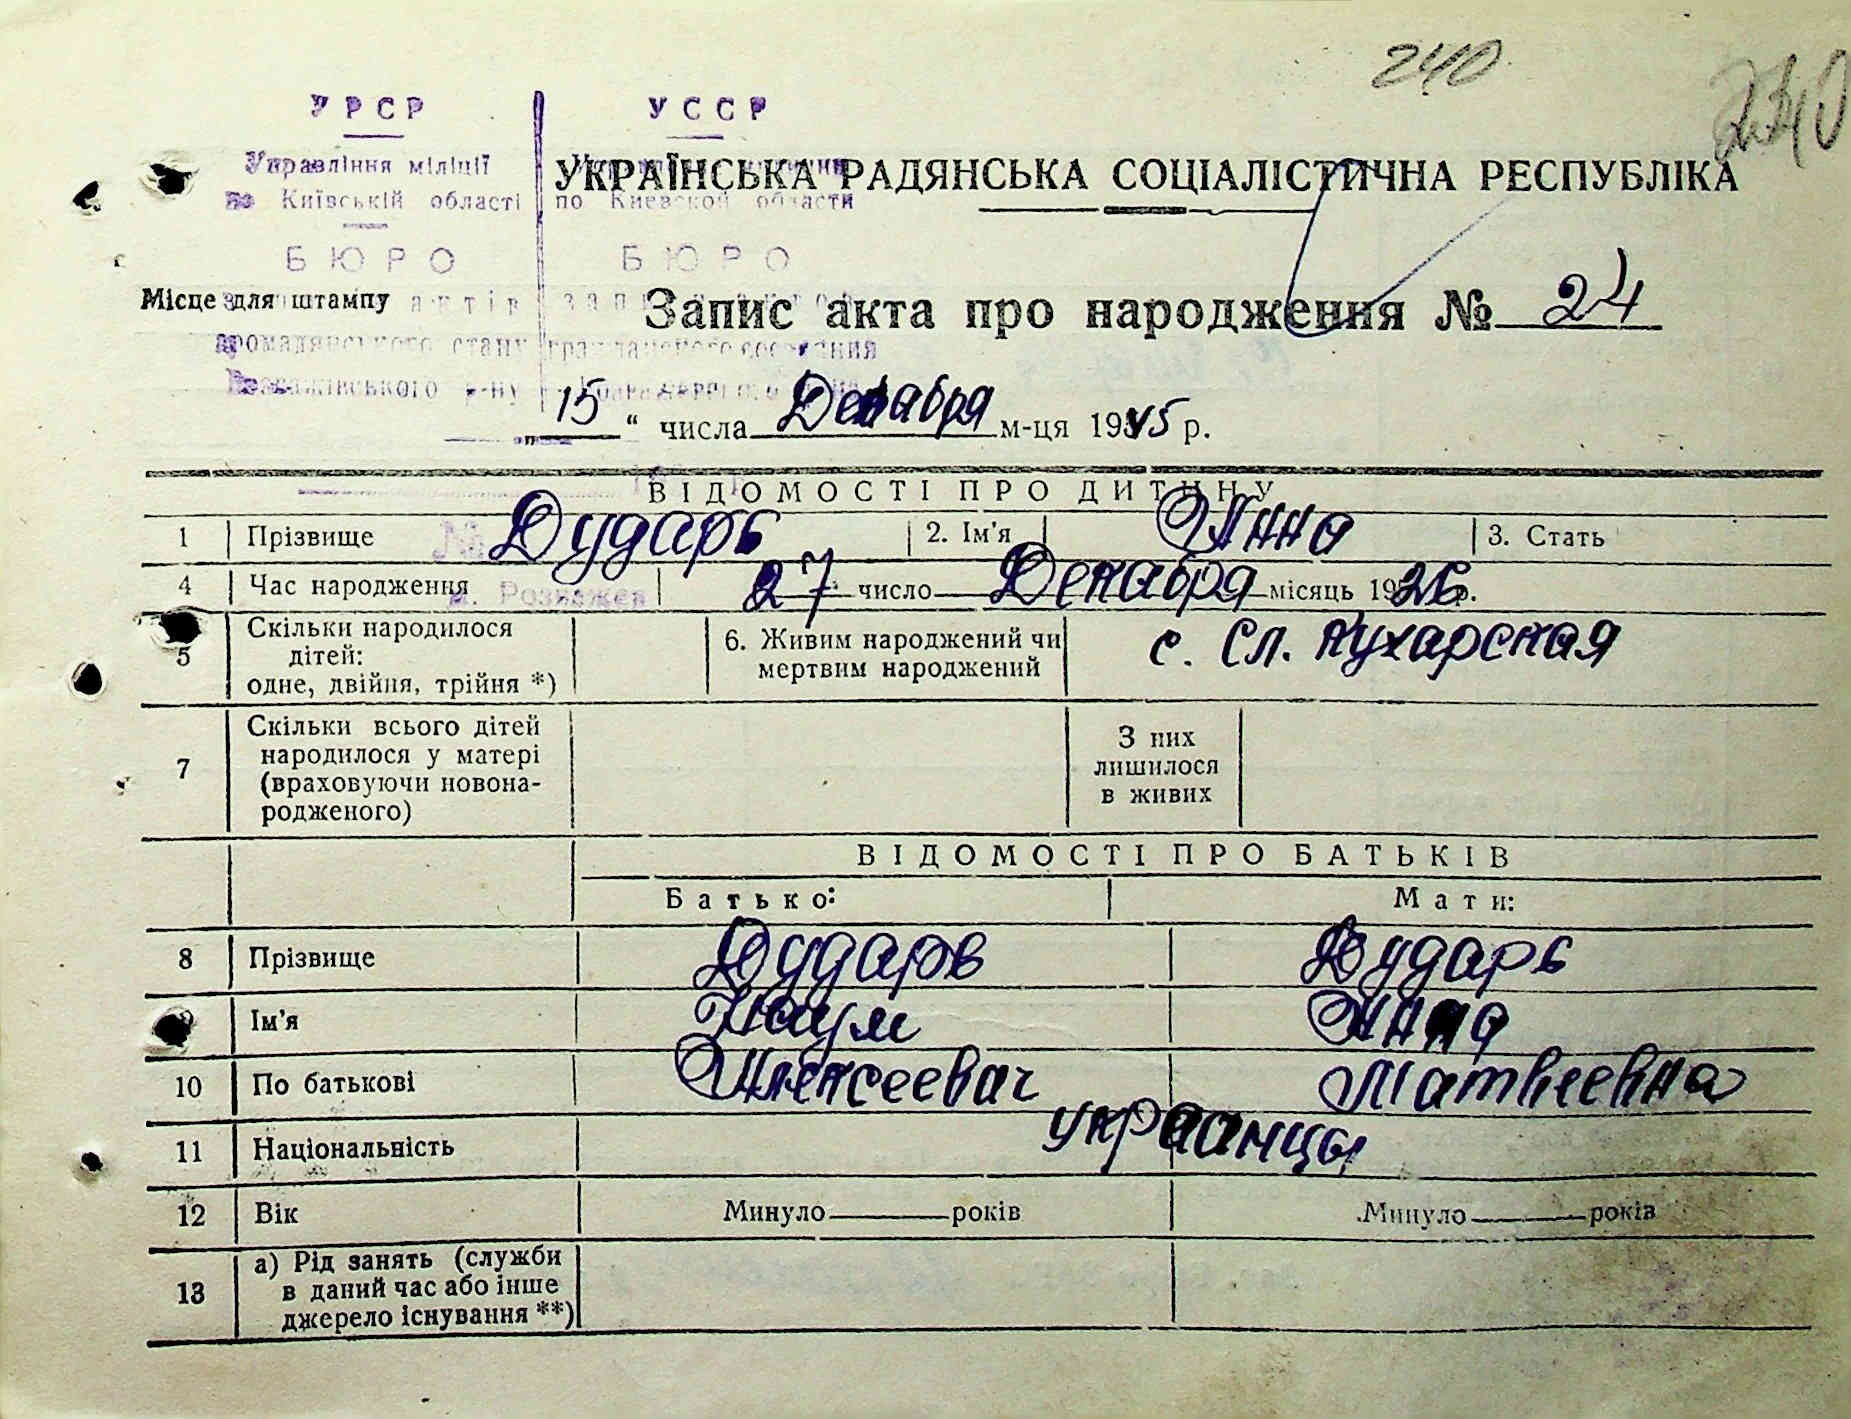 240
240
УРСР
УССР
Управління міліції
по Київській області
по Киевской области
УКРАЇНСЬКА РАДЯНСЬКА СОЦІАЛІСТИЧНА РЕСПУБЛІКА
БЮРО
БЮРО
Місце для штампу
актів
Запис акта про народження № 24
громадянського стану
гражданского состояния
Розважівського р-ну
„15“ числа Декабря м-ця 1945 р.
ВІДОМОСТІ ПРО ДИТИНУ
1 Прізвище Дударь 2. Ім'я Анна 3. Стать
м. Розважев
4 Час народження 27 число Декабря місяць 1926 р.
5 Скільки народилося
дітей:
одне, двійня, трійня *)
6. Живим народжений чи
мертвим народжений
с. Сл. Кухарская
7 Скільки всього дітей
народилося у матері
(враховуючи новона-
родженого)
З них
лишилося
в живих
ВІДОМОСТІ ПРО БАТЬКІВ
Батько: Мати:
8 Прізвище Дударь Дударь
9 Ім'я Наум Анна
10 По батькові Алексеевич Матвеевна
11 Національність украинцы
12 Вік Минуло років Минуло років
13 а) Рід занять (служби
в даний час або інше
джерело існування **)